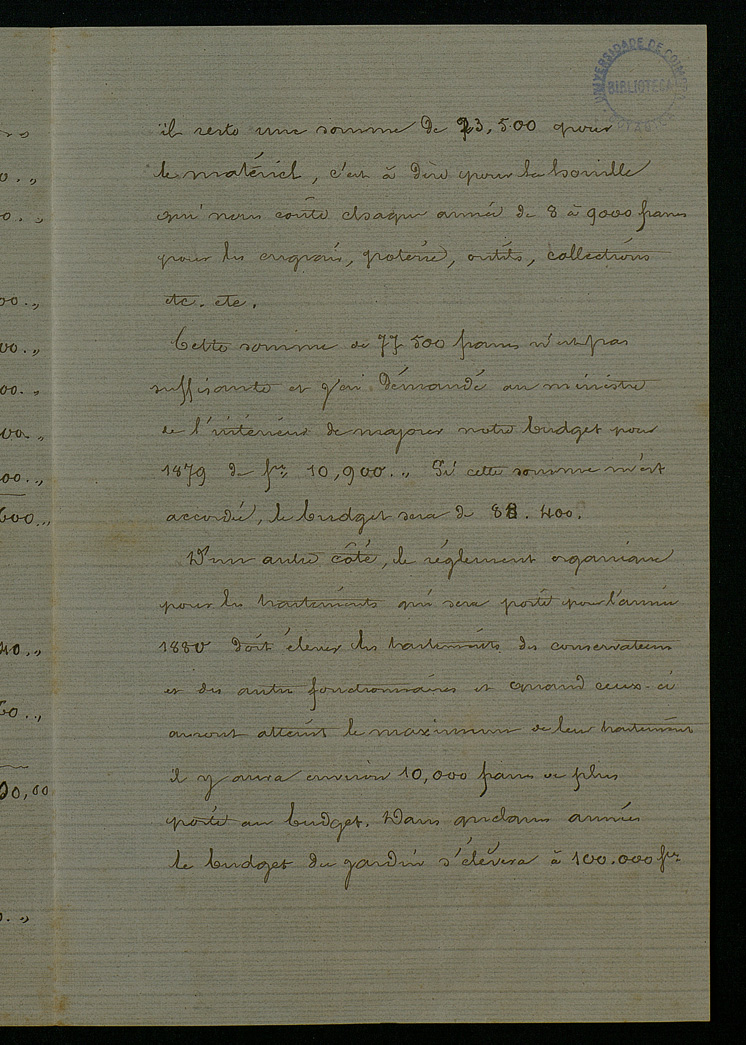 UNIVERSIDADE DE COIMBRA
BIBLIOTECA
il reste une somme de 23,500 pour
le matériel, c'est à dire pour la houille
qui nous coûte chaque année de 8 à 9000 francs
pour les engrais, poterie, outils, collections
etc. etc.
Cette somme de 77 500 francs n'est pas
suffisante et j'ai démandé au ministre
de l'intérieur de majorer notre budget pour
1879 de frs 10,900.,, Si cette somme m'est
accordée, le budget sera de 88.400.
D'un autre côté, le réglement organique
pour les traitements qui sera porté pour l'année
1880 doit élever les traitements des conservateurs
et des autres fonctionnaires et quand ceux-ci
auront atteint le maximum de leur traitement
il y aura environ 10,000 francs de plus
porté au budget. Dans quelques années
le budget du jardin s'élèvera à 100.000 frs
00.,,
00.,,
00.,,
00.,,
00.,,
600.,,
40.,,
60.,,
00,00
0.,,